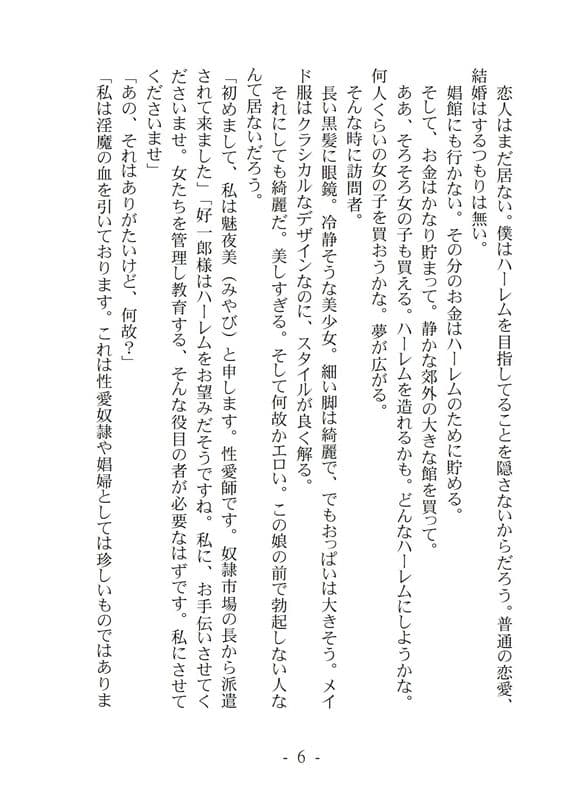 恋人はまだ居ない。僕はハーレムを目指してることを隠さないからだろう。普通の恋愛、
結婚はするつもりは無い。
娼館にも行かない。その分のお金はハーレムのために貯める。
そして、お金はかなり貯まって。静かな郊外の大きな館を買って。
ああ、そろそろ女の子も買える。ハーレムを造れるかも。どんなハーレムにしようかな。
何人くらいの女の子を買おうかな。夢が広がる。
そんな時に訪問者。
長い黒髪に眼鏡。冷静そうな美少女。細い脚は綺麗で、でもおっぱいは大きそう。メイ
ド服はクラシカルなデザインなのに、スタイルが良く解る。
それにしても綺麗だ。美しすぎる。そして何故かエロい。この娘の前で勃起しない人な
んて居ないだろう。
「初めまして、私は魅夜美（みやび）と申します。性愛師です。奴隷市場の長から派遣
されて来ました」「好一郎様はハーレムをお望みだそうですね。私に、お手伝いさせてく
ださいませ。女たちを管理し教育する、そんな役目の者が必要なはずです。私にさせて
くださいませ」
「あの、それはありがたいけど、何故？」
「私は淫魔の血を引いております。これは性愛奴隷や娼婦としては珍しいものではありま
- 6 -